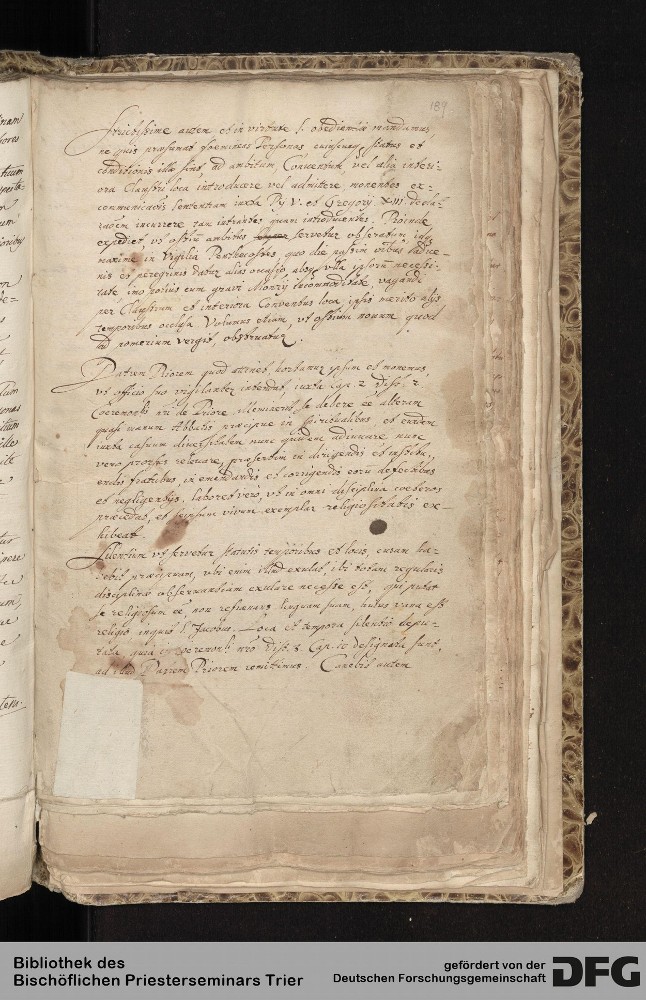 189
Strictissime autem et in virtute S. obedientiae mandamus,
ne quis praesumat foemineas Personas cuiuscunq, status et
conditionis illae sint, ad ambitum, Conventum, vel alia interi-
ora Claustri loca introducere vel admittere, monentes ex-
communicationis sententiam iuxta Pij V. et Gregorij XIII decla-
rationem incurrere tam intrantes quam introducentes. Proinde
expediet, ut ostium ambitus semper servetur obseratum idq,
maxime in Vigilia Penthecostes, quo die passim
nis et peregrinis datur alias occasio, absq, ulla ipsorum necessi-
tate imo potius cum gravi Montrij incommoditate, vagandi
per Claustrum et interiora Conventus loca ipsis merito alijs
temporibus occlusa. Volumus etiam, ut ostium novum quod
ad pomerium vergit obstruatur.
Patrem Priorem quod attinet, hortamur ipsum et monemus
ut officio suo vigilanter intendat, iuxta cap. 2 Dist. 2.
Ceremonis nri de Priore, meminerit se debere ee alteram
quasi manum Abbatis praecipue in spiritualibus, et eundem
iuxta casuum diversitatem nunc quidem adiuvare nunc
vero prorsus relevare, praesertim in dirigendis et institu-
endis fratribus, in emendandis et corrigendis eorum defectibus
et negligentijs, laboret vero, ut in omni disciplina coeteros
praecedat, et seipsum vivum exemplar religiositatis ex-
hibeat.
Silentium ut servetur statutis temporibus et locis, curam ha-
bebit praecipuam, ubi enim illud exulat, ibi totam regularis
disciplinae observantiam exulare necesse est, qui putat
se religiosum ee, non refraenans linguam suam, huius vana est
religio inquit S. Jacobus. Loca et tempora silentio depu-
tata quia in ceremonli nro Dist. 8 Cap. designata sunt,
ad illud Patrem Priorem remittimus. Cavebit autem
Bibliothek des
Bischöflichen Priesterseminars Trier
gefördert von der
Deutschen Forschungsgemeinschaft
DFG